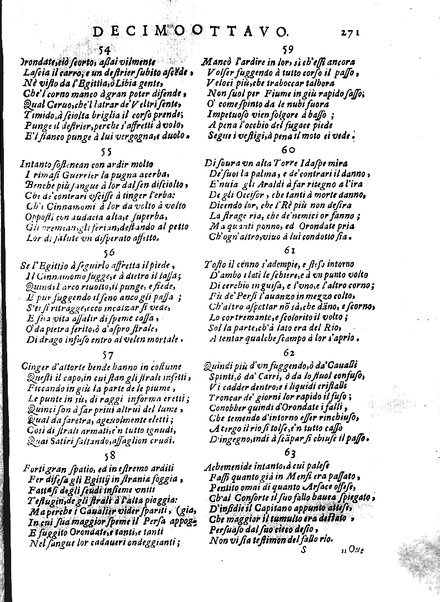 DECIMOOTTAVO. 271
54
Orondate, ciò scorto, assai vilmente
Lascia il carro, e un destrier subito ascēde,
Nè visto da l'Egittia, ò Libia gente,
Che'l corno manco à gran poter difende,
Qual Ceruo, che'l latrar de' Veltri sente,
Timido, à sciolta briglia il corso prende;
Punge il destrier, perche s'affretti à volo,
E'l fianco punge à lui vergogna, e duolo.
55
Intanto sostenean con ardir molto
I rimasi Guerrier la pugna acerba,
Benche più sangue à lor dal sen disciolto,
Che de' contrari vscisse à tinger l'erba;
Ch'i Cinnamomi à lor da volto à volto
Opposti con audacia alta, e superba,
Gli premean, gli ferian, destando al petto
Lor di salute vn disperato affetto.
56
Se l'Egittio à seguirlo affretta il piede,
Il Cinnamomo fugge, e à dietro il lassa;
Quindi l'arco riuolto, il punge, e fiede,
E pur fuggendo il seno anco gli passa;
S'ei si ritragge, ecco incalzar si vede,
E sua vita assalir di speme cassa,
O da pietra ferito, ò d'aspro strale,
Di drago infuso entro al velen mortale.
57
Cinger d'attorte bende hanno in costume
Questi il capo, in cui stan gli strali infetti,
Ficcando in giù la parte de le piume,
Le punte in sù, di raggi informa eretti;
Quinci son à far priui altrui del lume,
Qual da faretra, ageuolmente eletti;
Così di strali armati, e'n tutto ignudi,
Quai Satiri saltando, assaglion crudi.
58
Fortigran spatio, ed in estremo arditi
Fer difesa gli Egittij in strania foggia,
Fattasi degli scudi insieme vniti
Testugin, de gli strali à l'alta pioggia:
Ma perche i Caualier vider spariti, (gia,
In cui sua maggior speme il Persa appog-
E fuggito Orondate, e tanti, e tanti
Nel sangue lor cadaueri ondeggianti;
59
Mancò l'ardire in lor; sì ch'essi ancora
Volser fuggendo à tutto corso il passo,
Veloci più, che traboccar talhora
Non suol per Fiume in giù rapido sasso;
O' come spinto da le nubi fuora
Impetuoso vien folgore à basso;
A pena l'occhio del fugace piede
Segue i vestigi, à pena il moto ei vede.
60
Di soura vn alta Torre Idaspe mira
De' suoi la palma, e de' contrari il danno,
E'nuia gli Araldi à far ritegno al l'ira
De gli Occisor, che tanti à morte danno,
Dicendo lor, che'l Rè più non desira
La strage ria, che de' nemici or fanno;
Ma quanti ponno, ed Orondate pria
Ch'ogn'altro, viuo à lui condotto sia.
61
Tosto il cenno s'adempie, e steso intorno
D'ambo i lati le schiere, e à vn punto volto
Di cerchio in guisa, e l'vno, e l'altro corno,
Fù de' Persi l'auanzo in mezzo colto,
Ch'altro aspettar nō sà, che dāno, e scorno,
Lo cor tremante, e scolorito il volto;
Sol la parte, ch'à lato era del Rio,
A tentar qualche scampo à lor s'aprio.
62
Quindi più d'vn fuggendo, ò da' Caualli
Spinti, ò da' Carri, ò da lo stuol confuso,
Vi cadder dentro, e i liquidi cristalli
Troncar de' giorni lor rapido il fuso;
Conobber quindi d'Orondate i falli,
Che temendo d'intorno esser rinchiuso,
A tergo il rio si tolse, e'n tutto casso
D'ingegno, indi à scāpar si chiuse il passo.
63
Achemenide intanto, à cui palese
Fassi quanto già in Mensi era passato,
Pentito omai di quanto Arsace offese,
Ch'al Conforte il suo fallo hauea spiegato,
D'insidie il Capitano appunto attese,
Che maggior il tumulto era destato,
Persuaso dal suo cieco desio,
Non vi sia testimon del fallo rio.
S ,,One